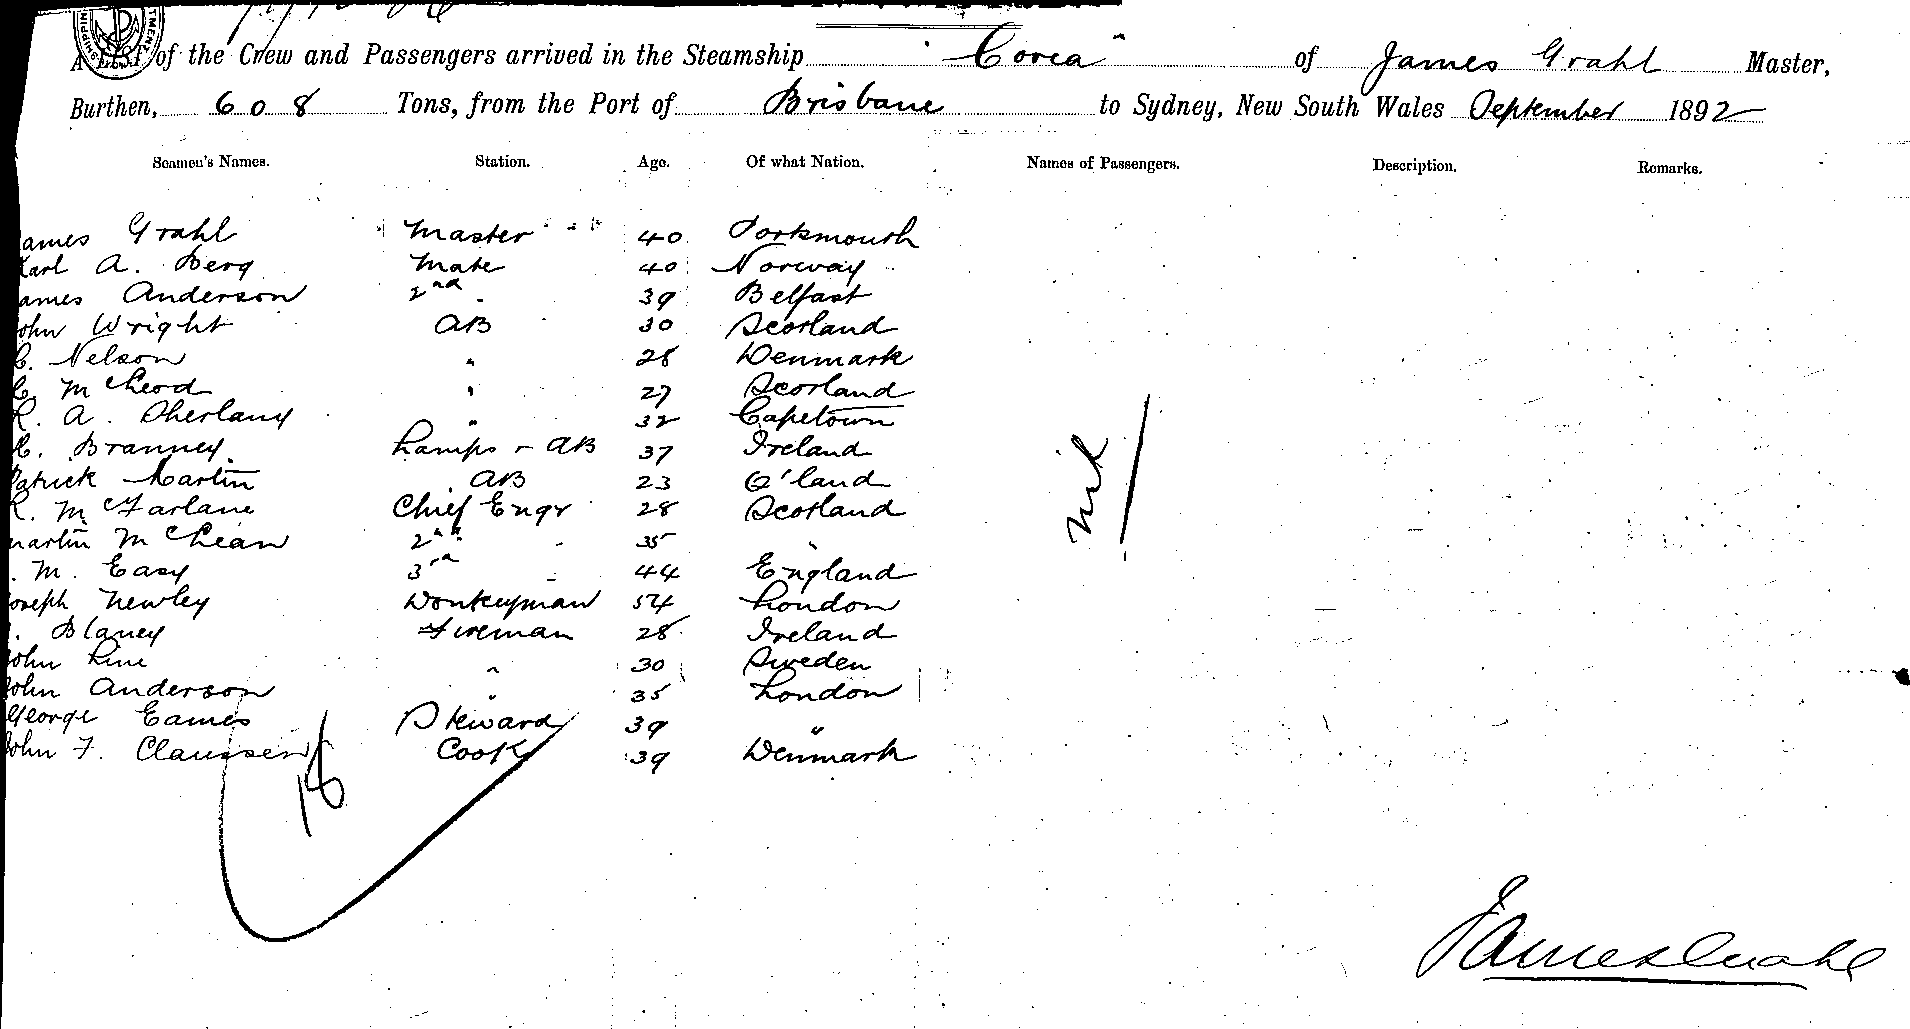 A LIST of the Crew and Passengers arrived in the Steamship "Corea" of James Grahl Master,
Burthen, 608 Tons, from the Port of Brisbane to Sydney, New South Wales September 1892
Seamen's Names. Station. Age. Of what Nation. Names of Passengers. Description. Remarks.
ames Grahl Master 40 Portsmouth
Karl A. Berg Mate 40 Norway
ames Anderson 2nd " 39 Belfast
John Wright AB 30 Scotland
C. Nelson " 28 Denmark
C. McLeod " 27 Scotland
R. A. Oherlany " 32 Capetown
H. Branney Lamps & AB 37 Ireland
Patrick Martin AB 23 Q'land
R. McFarlane Chief Engr 28 Scotland
Martin McLean 2nd " 35 "
. M. Easy 3rd " 44 England
Joseph Newley Donkeyman 54 London
. Blaney Fireman 28 Ireland
John Line " 30 Sweden
John Anderson " 35 London
George Eames Steward 39 "
John F. Claussen Cook 39 Denmark
nil
18
James Grahl